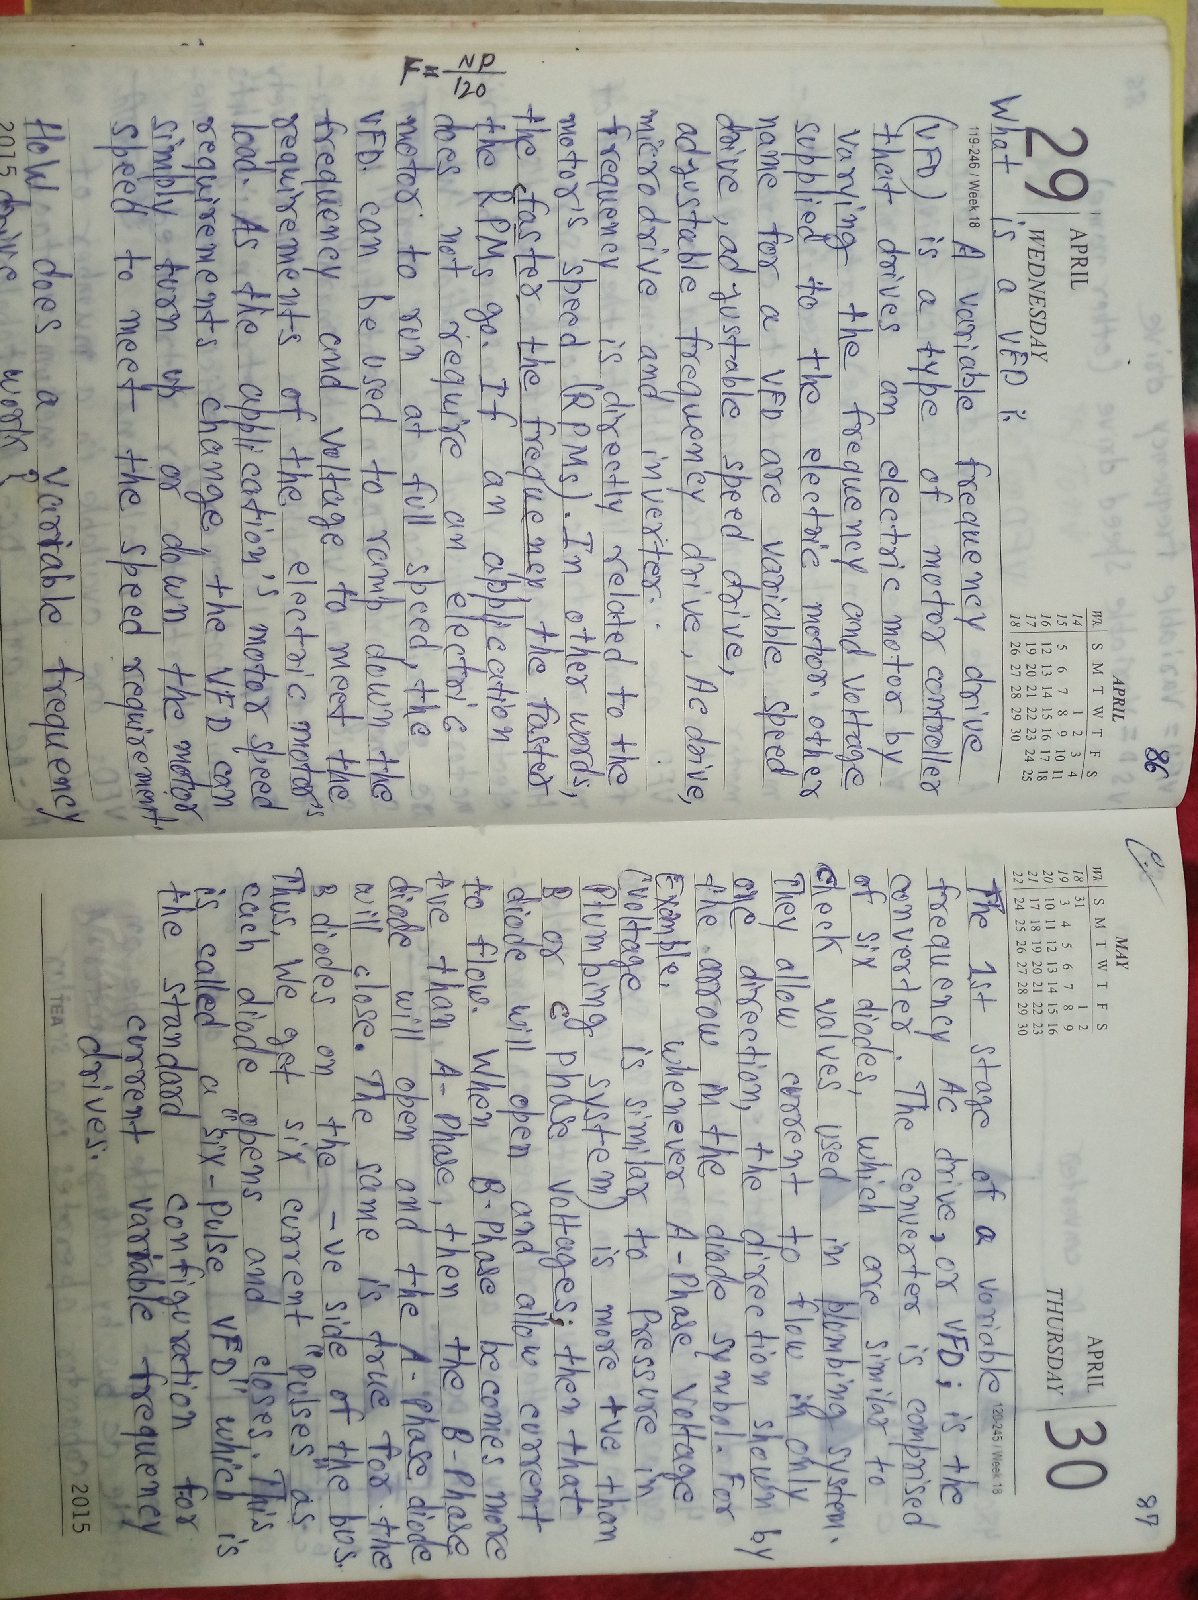 86
29
APRIL
WEDNESDAY
119-246 / Week 18
APRIL
WK S M T W T F S
14 1 2 3 4
15 5 6 7 8 9 10 11
16 12 13 14 15 16 17 18
17 19 20 21 22 23 24 25
18 26 27 28 29 30
What is a VFD?
A variable frequency drive
(VFD) is a type of motor controller
that drives an electric motor by
varying the frequency and voltage
supplied to the electric motor. other
name for a VFD are variable speed
drive, adjustable speed drive,
adjustable frequency drive, Ac drive,
micro drive and inverter.
frequency is directly related to the
motor's speed (RPMs). In other words,
the faster the frequency, the faster
the RPMs go. If an application
does not require an electric
motor to run at full speed, the
VFD can be used to ramp down the
frequency and voltage to meet the
requirements of the electric motor's
load. As the application's motor speed
requirements change, the VFD can
simply turn up or down the motor
speed to meet the speed requirement.
How does a Variable frequency
drive work?
F = NP
120
2015
87
MAY
WK S M T W T F S
18 31 1 2
19 3 4 5 6 7 8 9
20 10 11 12 13 14 15 16
21 17 18 19 20 21 22 23
22 24 25 26 27 28 29 30
APRIL
THURSDAY
30
120-245 / Week 18
The 1st stage of a variable
frequency Ac drive, or VFD, is the
converter. The converter is comprised
of six diodes, which are similar to
check valves used in plombing system.
They allow current to flow in only
one direction, the direction shown by
the arrow in the diode symbol. For
Example, whenever A-Phase voltage
(voltage is similar to Pressure in
Plumping system) is more +ve than
B or C phase voltages, then that
diode will open and allow current
to flow. When B-Phase becomes more
+ve than A-Phase, then the B-Phase
diode will open and the A-phase diode
will close. The same is true for the
3 diodes on the -ve side of the bus.
Thus, We get six current "Pulses" as
each diode opens and closes. This
is called a "six-Pulse VFD" which is
the standard configuration for
current variable frequency
drives.
2015